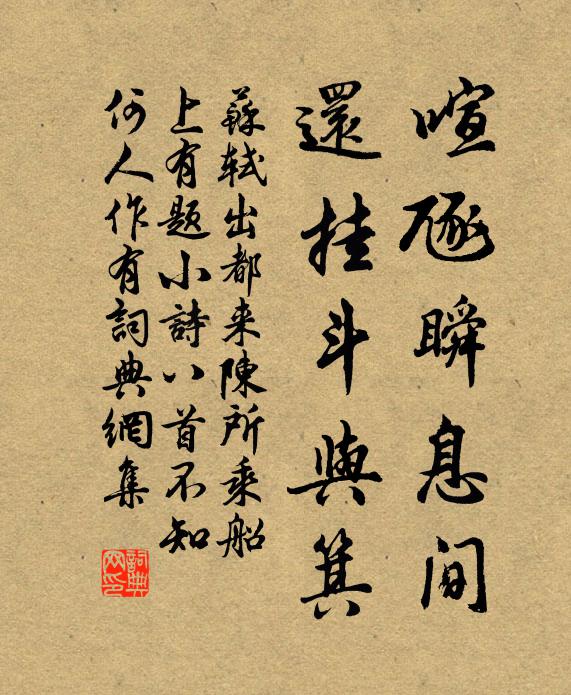 喧豗瞬息间
還挂斗與箕
蘇軾出都来陳所乘船
上有题小詩八首不知
何人作有詞典網集
詞典
网印